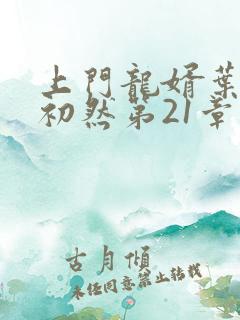 上門龍婿葉
初然第21章
古月傾
未經同意禁止轉載